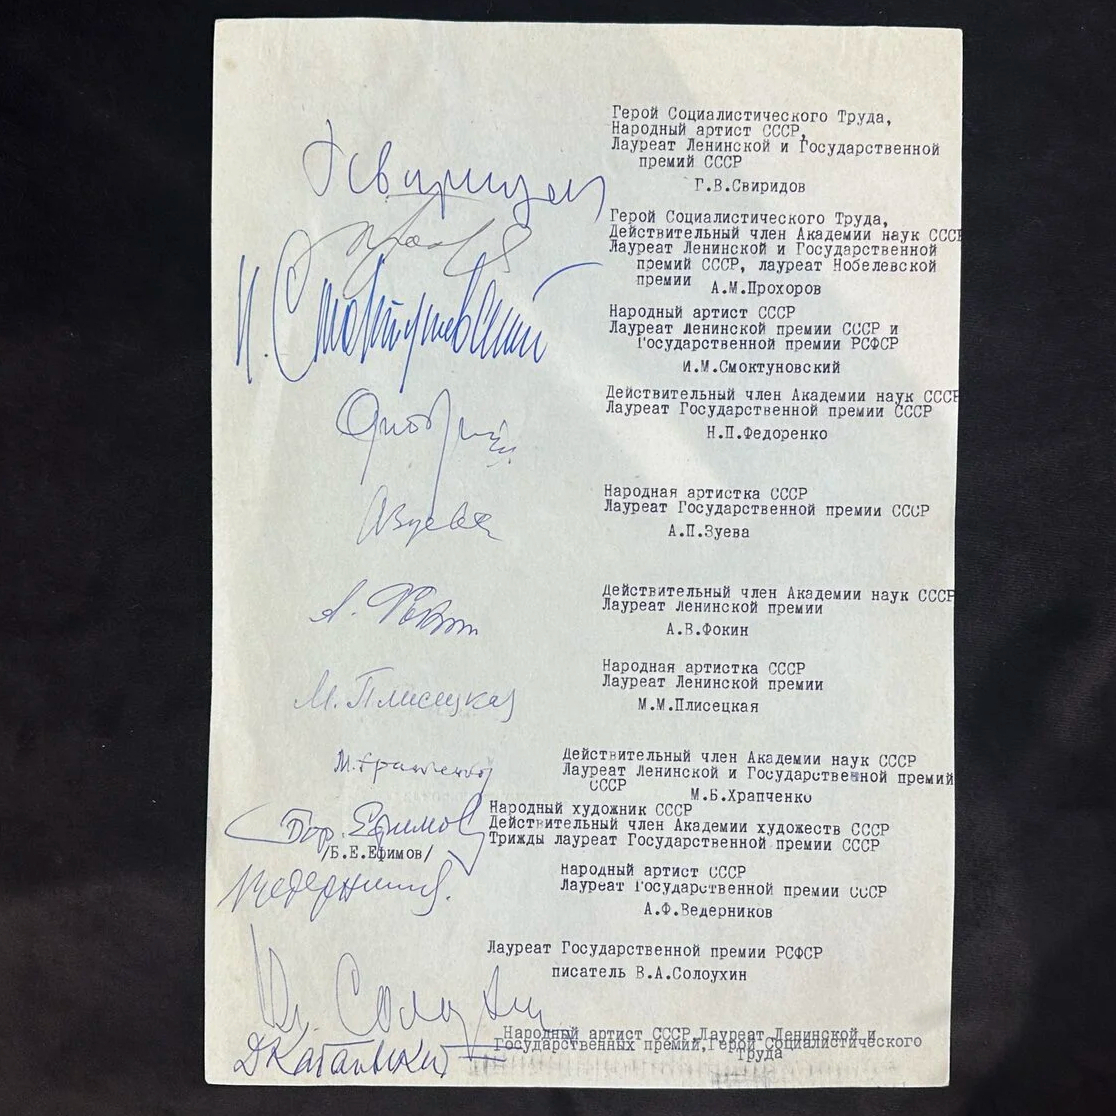 Герой Социалистического Труда,
Народный артист СССР,
Лауреат Ленинской и Государственной
премий СССР
Г.В.Свиридов
Гсвиридов
Герой Социалистического Труда,
Действительный член Академии наук СССР
Лауреат Ленинской и Государственной
премий СССР, лауреат Нобелевской
премии
А.М.Прохоров
Народный артист СССР
Лауреат Ленинской премии СССР и
Государственной премии РСФСР
И.М.Смоктуновский
И. Смоктуновский
Действительный член Академии наук СССР
Лауреат Государственной премии СССР
Н.П.Федоренко
Народная артистка СССР
Лауреат Государственной премии СССР
А.П.Зуева
АЗуева
Действительный член Академии наук СССР
Лауреат Ленинской премии
А.В.Фокин
А. Фокин
Народная артистка СССР
Лауреат Ленинской премии
М.М.Плисецкая
М. Плисецкая
Действительный член Академии наук СССР
Лауреат Ленинской и Государственной премий
СССР
М.Б.Храпченко
М. Храпченко
Народный художник СССР
Действительный член Академии художеств СССР
Трижды лауреат Государственной премии СССР
Бор. Ефимов
/Б.Е.Ефимов/
Народный артист СССР
Лауреат Государственной премии СССР
А.Ф.Ведерников
Ведерников.
Лауреат Государственной премии РСФСР
писатель В.А.Солоухин
Вл. Солоухин
Народный артист СССР,Лауреат Ленинской и
Государственных премий,Герой Социалистического
Труда
ДКабалевский